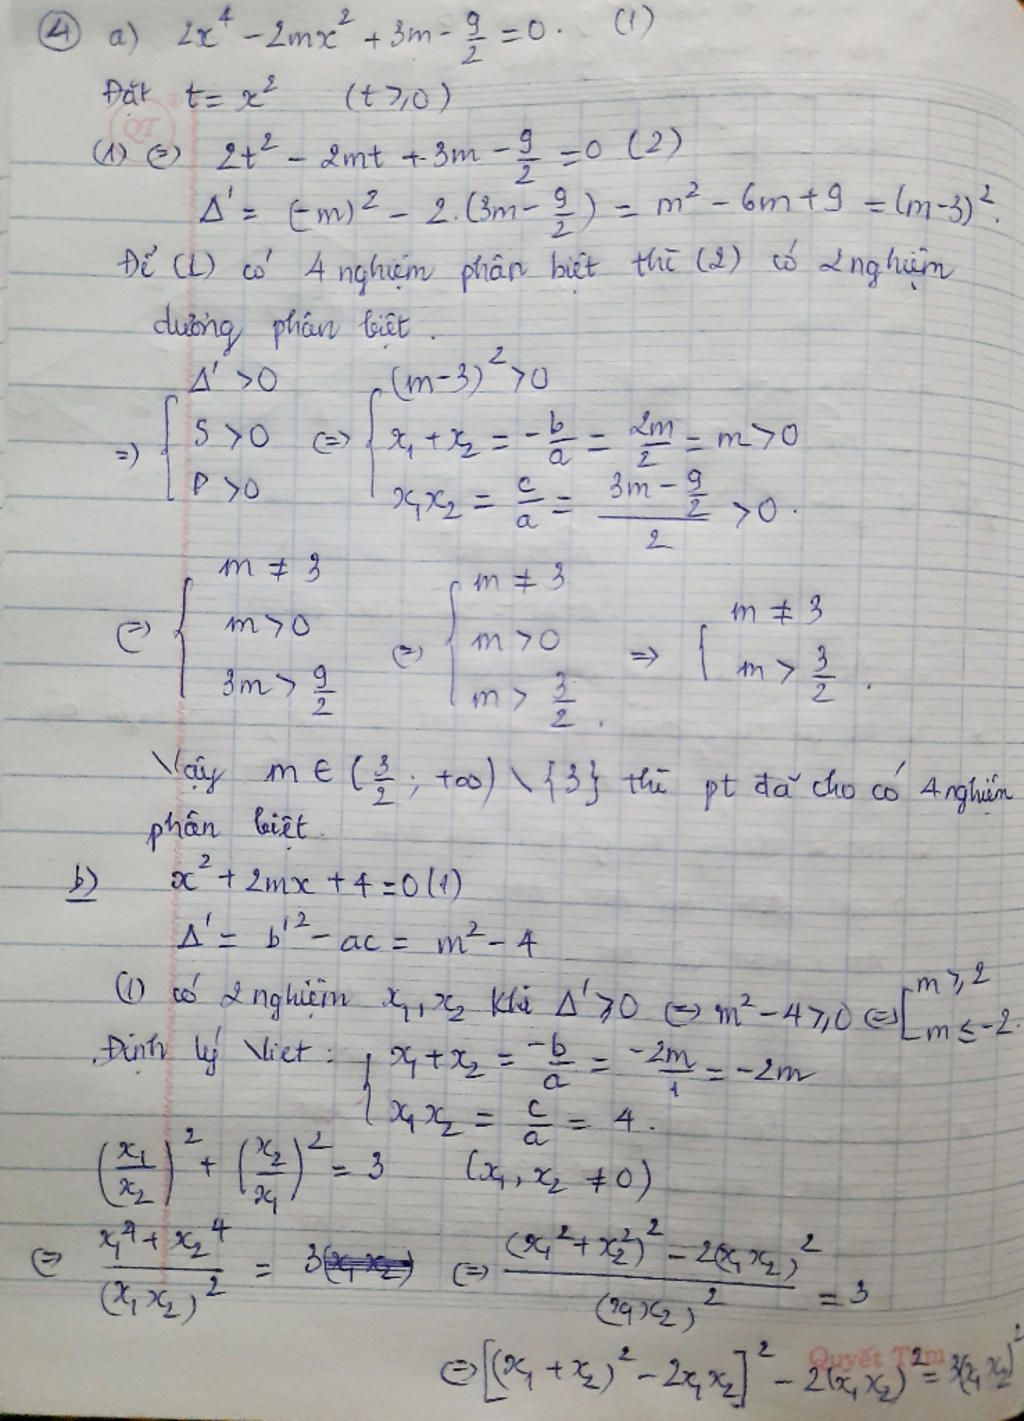 ④ a) 2x⁴ - 2mx² + 3m - 9/2 = 0. (1)
Đặt t = x² (t ≥ 0)
(1) ⇔ 2t² - 2mt + 3m - 9/2 = 0 (2)
Δ' = (-m)² - 2.(3m - 9/2) = m² - 6m + 9 = (m-3)².
Để (1) có 4 nghiệm phân biệt thì (2) có 2 nghiệm
dương phân biệt.
⇒ { Δ' > 0 ; S > 0 ; P > 0 ⇔ { (m-3)² > 0 ; x₁ + x₂ = -b/a = 2m/2 = m > 0 ; x₁x₂ = c/a = (3m - 9/2)/2 > 0.
⇔ { m ≠ 3 ; m > 0 ; 3m > 9/2 ⇔ { m ≠ 3 ; m > 0 ; m > 3/2. ⇒ { m ≠ 3 ; m > 3/2.
Vậy m ∈ (3/2; +∞) \ {3} thì pt đã cho có 4 nghiệm
phân biệt.
b) x² + 2mx + 4 = 0 (1)
Δ' = b'² - ac = m² - 4
(1) có 2 nghiệm x₁, x₂ khi Δ' ≥ 0 ⇔ m² - 4 ≥ 0 ⇔ [ m ≥ 2 ; m ≤ -2.
Định lý Viet: { x₁ + x₂ = -b/a = -2m/1 = -2m ; x₁x₂ = c/a = 4.
(x₁/x₂)² + (x₂/x₁)² = 3 (x₁, x₂ ≠ 0)
⇔ (x₁⁴ + x₂⁴)/(x₁x₂)² = 3 ⇔ ((x₁² + x₂²)² - 2(x₁x₂)²)/(x₁x₂)² = 3
⇔ [(x₁ + x₂)² - 2x₁x₂]² - 2(x₁x₂)² = 3(x₁x₂)²
Quyết Tâm